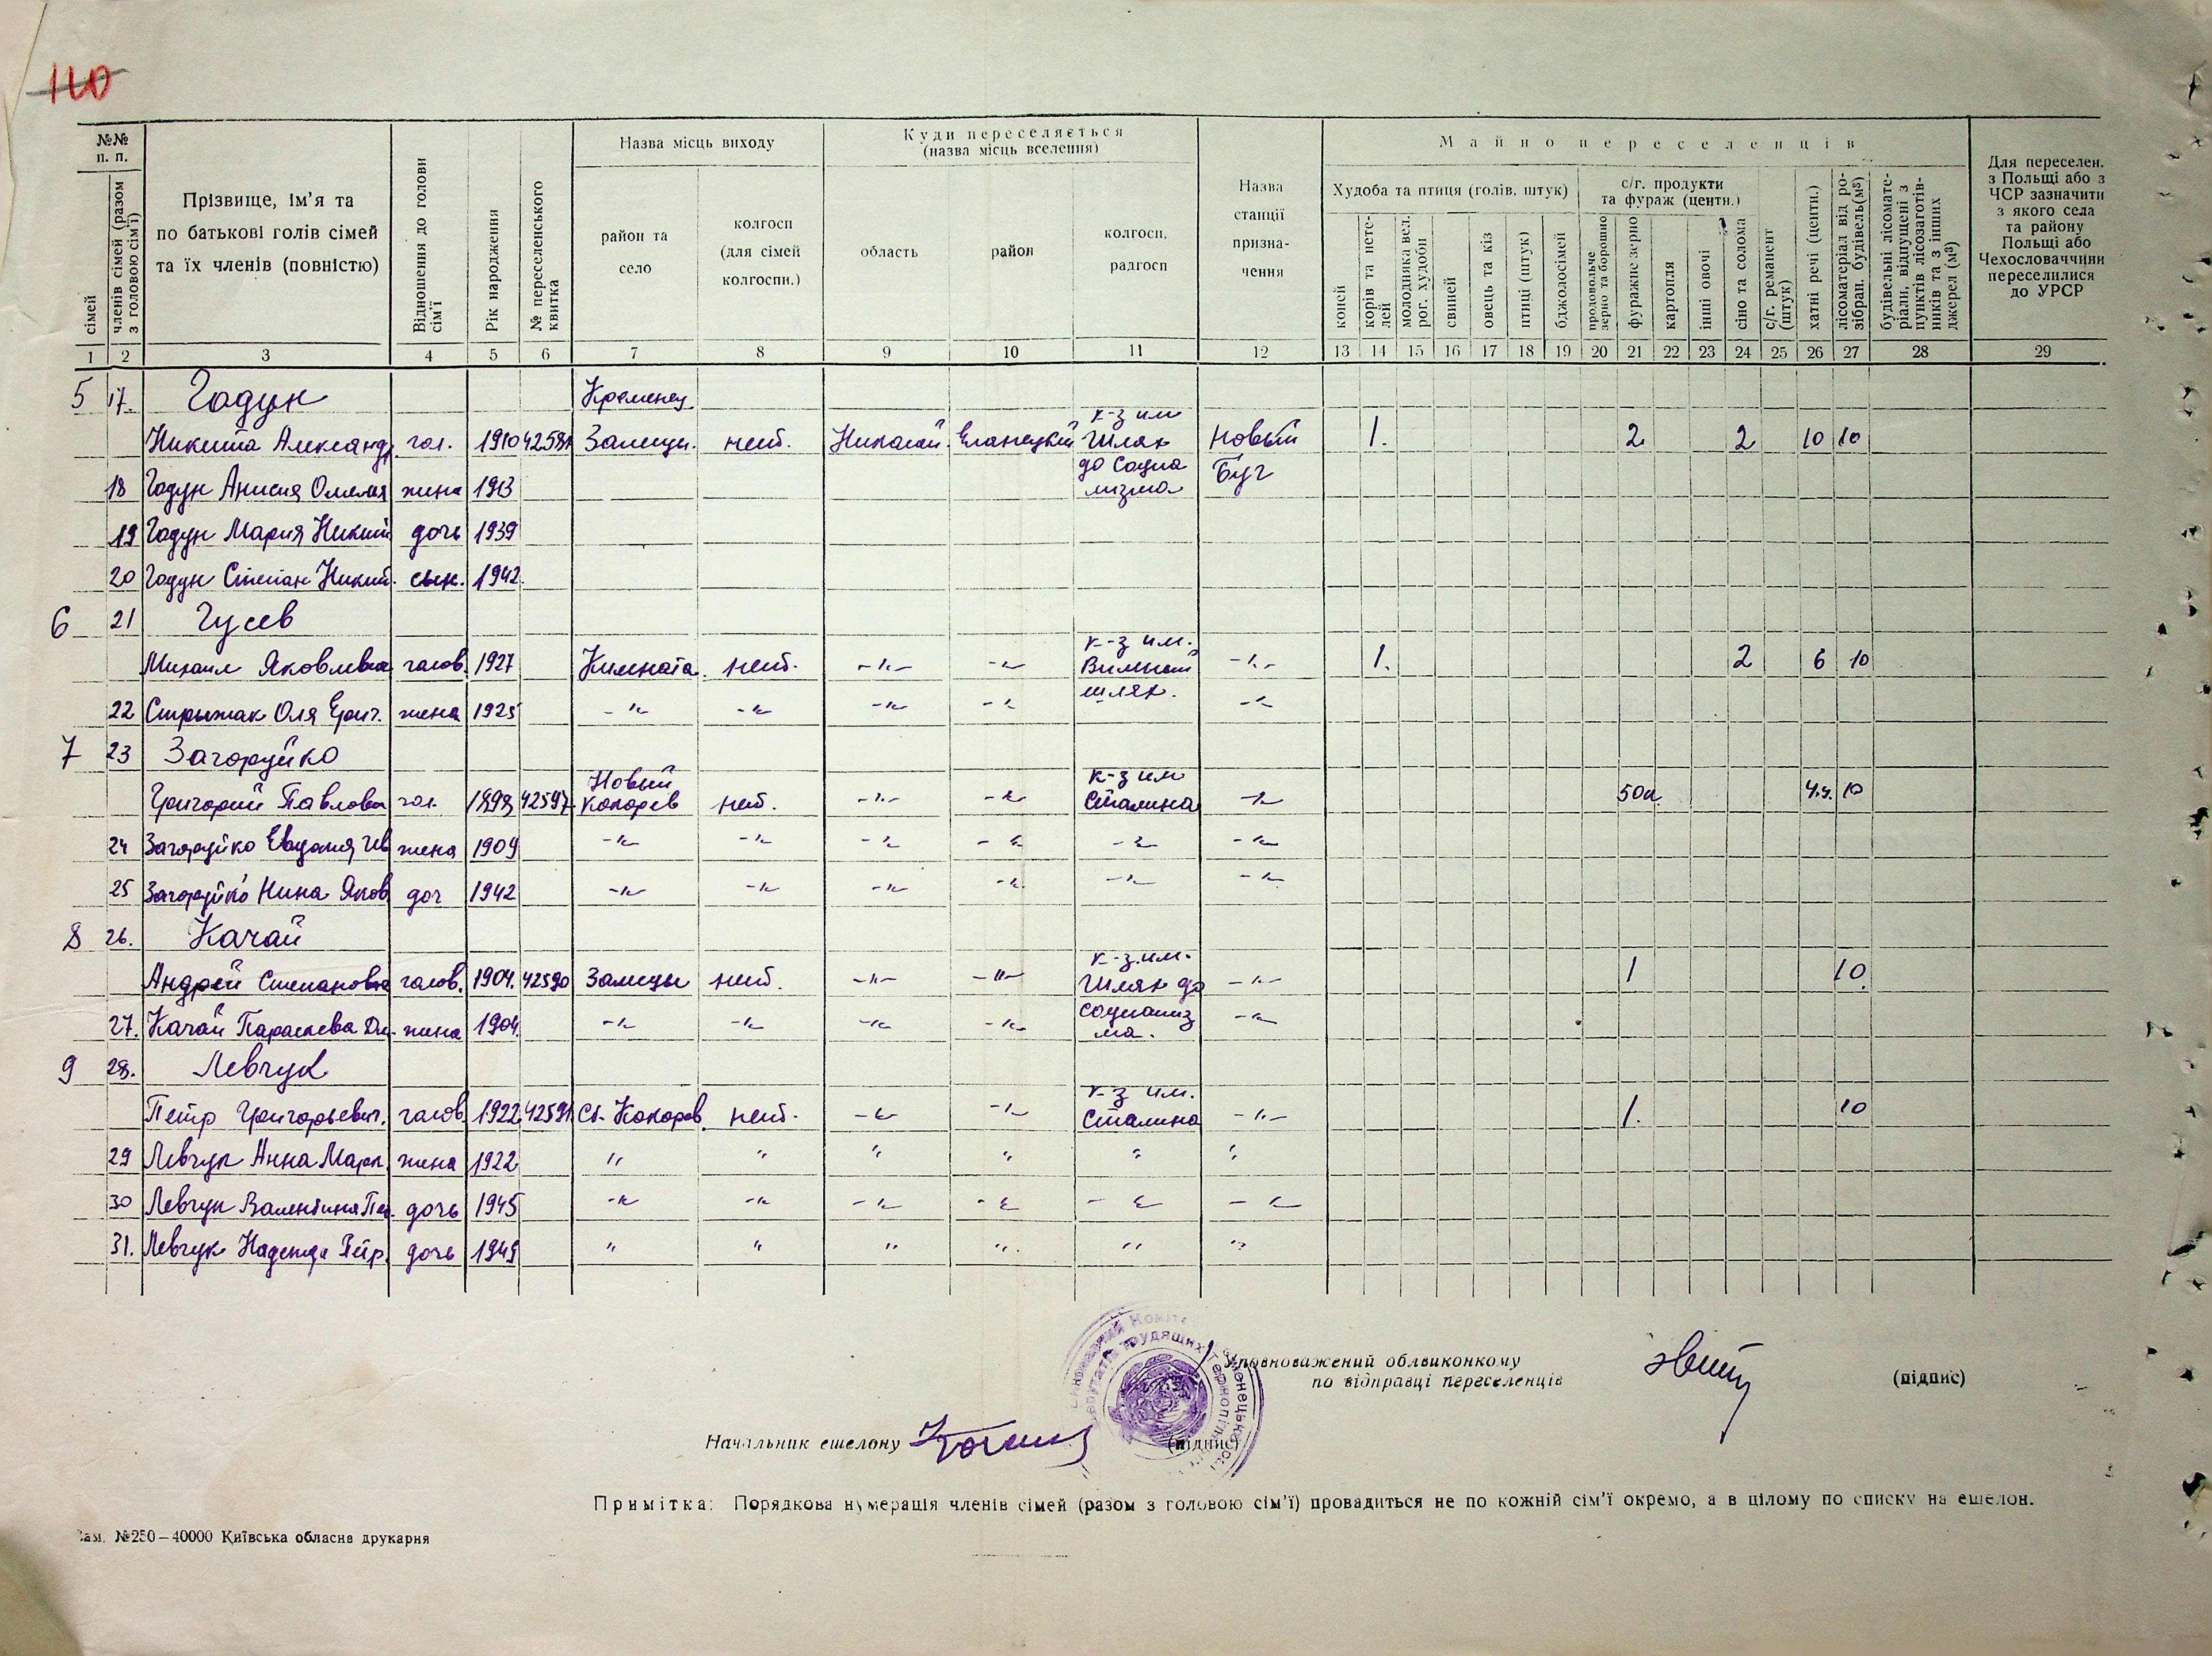 110
№№ п. п.
сімей
членів сімей (разом з головою сім'ї)
Прізвище, ім'я та по батькові голів сімей та їх членів (повністю)
Відношення до голови сім'ї
Рік народження
№ переселенського квитка
Назва місць виходу
район та село
колгосп (для сімей колгоспн.)
Куди переселяється (назва місць вселення)
область
район
колгосп, радгосп
Назва станції призна- чення
Майно переселенців
Худоба та птиця (голів, штук)
коней
корів та нете- лей
молодняка вел. рог. худоби
свиней
овець та кіз
птиці (штук)
бджолосімей
с/г. продукти та фураж (центн.)
продовольче зерно та борошно
фуражне зерно
картопля
інші овочі
сіно та солома
с/г. реманент (штук)
хатні речі (центн.)
лісоматеріал від ро- зібран. будівель (м³)
будівельні лісомате- ріали, відпущені з пунктів лісозаготів-ників та з інших джерел (м³)
Для переселен. з Польщі або з ЧСР зазначити з якого села та району Польщі або Чехословаччини переселилися до УРСР
1 2 3 4 5 6 7 8 9 10 11 12 13 14 15 16 17 18 19 20 21 22 23 24 25 26 27 28 29
5 17. Годун Кременец.
Никита Александр. гол. 1910 Залисци. неб. Николай. Еланецкий к-з им Шлях до социа лизма Новый Буг 1. 2. 2 10 10
18 Годун Анисия жена 1913
19 Годун Мария Никит дочь 1939
20 Годун Степан Никит. сын. 1942.
6 21 Гусев
Михаил Яковлевич голов. 1927 Кимната. неб. -"- -"- к-з им. Вильный шлях. -"- 1. 2 6 10
22 Стрыжак Оля Григ. жена 1925 -"- -"- -"- -"- -"-
7 23 Загоруйко
Григорий Павлович гол. 1898 42597 Новый Кокорев неб. -"- -"- к-з им Сталина -"- 50к 4.ч. 10
24 Загоруйко Евдокия жена 1909 -"- -"- -"- -"- -"- -"-
25 Загоруйко Нина Яков доч 1942 -"- -"- -"- -"- -"- -"-
8 26. Качай
Андрей Степанович голов. 1904. 42590 Залисцы неб. -"- -"- к-з.им. Шлях до социализ ма. -"- 1 10.
27. Качай Параскева жена 1904. -"- -"- -"- -"- -"-
9 28. Левчук
Петр Григорьевич. голов. 1922 42591 Ст. Кокорев. неб. -"- -"- к-з им. Сталина -"- 1. 10
29 Левчук Анна Марк. жена 1922 " " " " " "
30 Левчук Валентина Пет. дочь 1945 -"- -"- -"- -"- -"- -"-
31. Левчук Надежда Петр. дочь 1949 " " " " " "
Уповноважений облвиконкому
по відправці переселенців (підпис)
Начальник ешелону (підпис)
Примітка: Порядкова нумерація членів сімей (разом з головою сім'ї) провадиться не по кожній сім'ї окремо, а в цілому по списку на ешелон.
Зам. №250—40000 Київська обласна друкарня